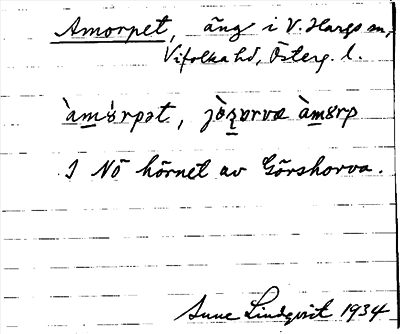 Amorpet, äng i V. Hargs sn,
Vifolka hd, Österg. l.
àm̲ɤ́rpət,
I NÖ hörnet av Görshorva.
Sune Lindqvist 1934